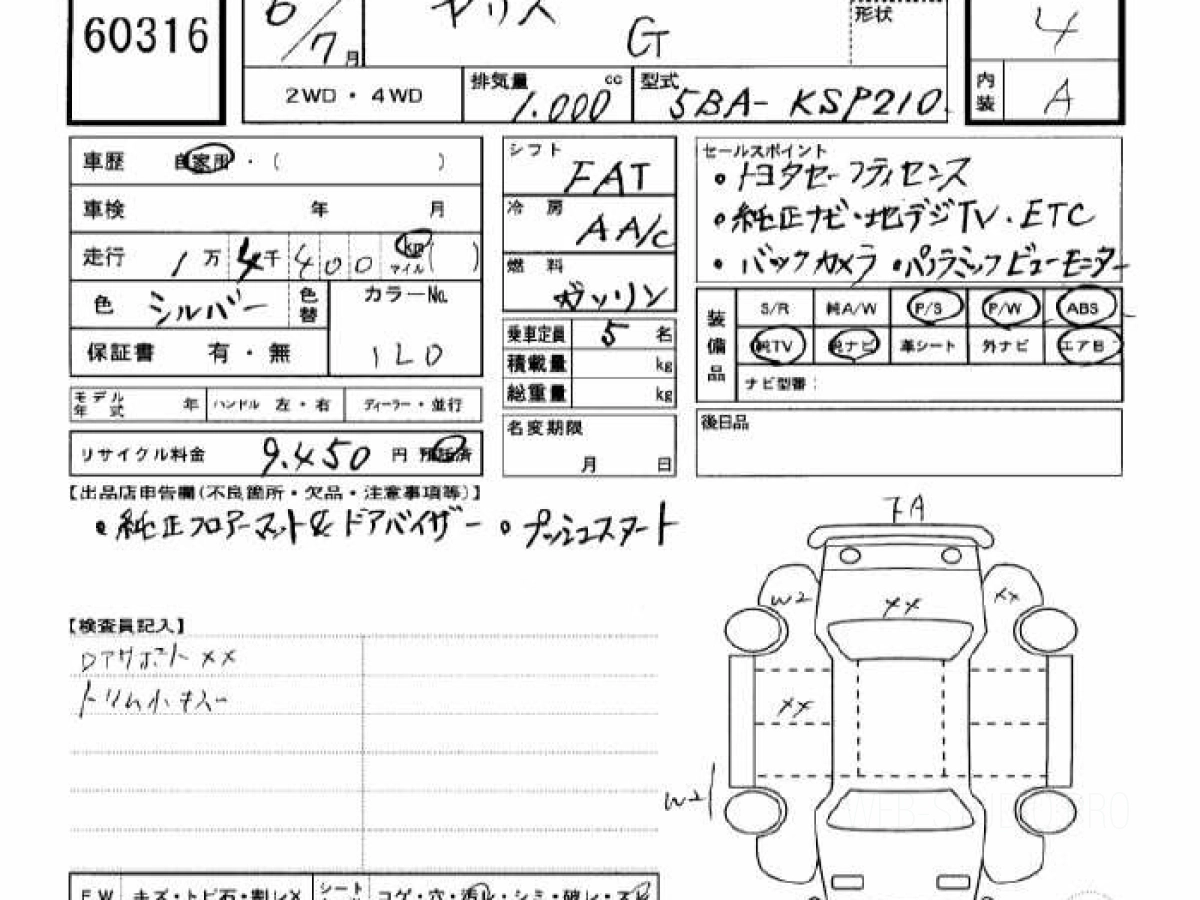 60316
6/7月
ヤリス
G
形状
4
2WD・4WD
排気量 cc 1.000
型式 5BA-KSP210
内装 A
車歴 自家用・( )
車検 年 月
走行 1万4千400 km マイル ( )
色 シルバー 色替
カラーNo. 1L0
保証書 有・無
モデル年式 年 ハンドル 左・右 ディーラー・並行
リサイクル料金 9.450 円 預託済
シフト FAT
冷房 AA/C
燃料 ガソリン
乗車定員 5 名
積載量 kg
総重量 kg
名変期限
月 日
セールスポイント
・トヨタセーフティセンス
・純正ナビ・地デジTV・ETC
・バックカメラ ・パノラミックビューモニター
装備品
S/R 純A/W P/S P/W ABS
純TV 純ナビ 革シート 外ナビ エアB
ナビ型番:
後日品
【出品店申告欄(不良箇所・欠品・注意事項等)】
・純正フロアーマット&ドアバイザー ・プッシュスタート
【検査員記入】
DアウサポートXX
トリム小キズ
7A
W2 XX XX
XX
W2
WEB-S
RO
FW キズ・トビ石・割レX シート コゲ・穴・汚レ・シミ・破レ・スレ